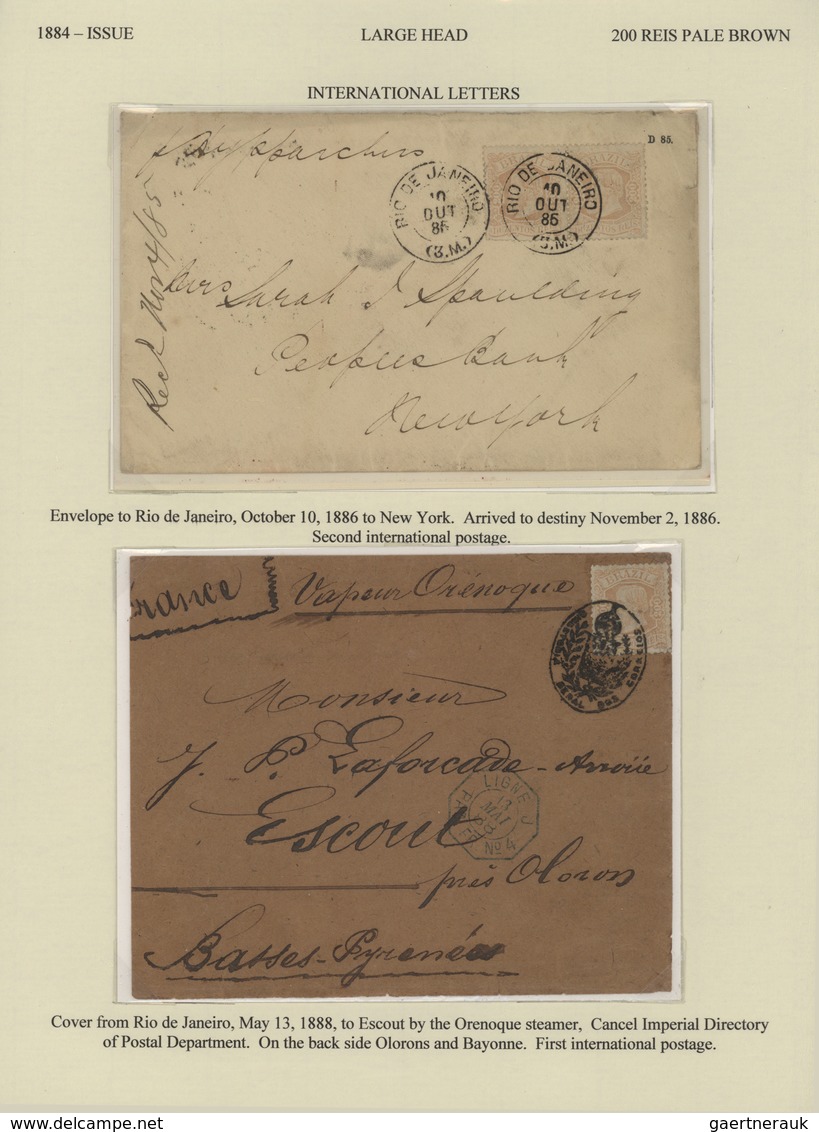 1884 – ISSUE LARGE HEAD 200 REIS PALE BROWN
INTERNATIONAL LETTERS
D 85.
BRAZIL
RIO DE JANEIRO
10
OUT
86
(3.M.)
RIO DE JANEIRO
10
OUT
86
(3.M.)
Mrs Sarah J Spaulding
Peoples Bank
New York
Recd Nov
Envelope to Rio de Janeiro, October 10, 1886 to New York. Arrived to destiny November 2, 1886.
Second international postage.
France
Vapeur Orénoque
BRAZIL
GERAL DOS CORREIOS
Monsieur
J. P. Laforcade-Arroüe
LIGNE J
13
MAI
88
PAQ. FR. Nº 4
Escout
près Oloron
Basses-Pyrenées
Cover from Rio de Janeiro, May 13, 1888, to Escout by the Orenoque steamer, Cancel Imperial Directory
of Postal Department. On the back side Olorons and Bayonne. First international postage.
delcampe.net
gaertnerauk